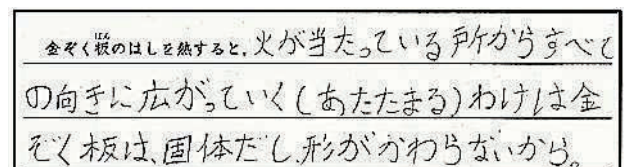 金ぞく板のはしを熱すると、火が当たっている所からすべて
の向きに広がっていく(あたたまる)わけは金
ぞく板は、固体だし、形がかわらないから。